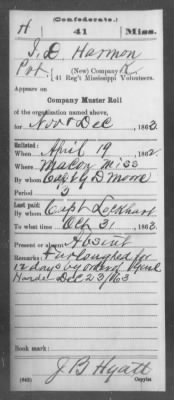 (Confederate.)
H 41 Miss.
J. D. Harmon
Pvt. (New) Company K,
41 Reg't Mississippi Volunteers.
Appears on
Company Muster Roll
of the organization named above,
for Nov & Dec, 1863.
Enlisted:
When April 19, 1862
Where Macon Miss
By whom Capt G D Moore
Period 3
Last paid:
By whom Capt Lockhart
To what time Oct 31, 1863.
Present or absent Absent
Remarks: Furloughed for
12 days by order of Genl
Hardee Dec 23/1863
Book mark:
J B Hyatt
(642) Copyist.